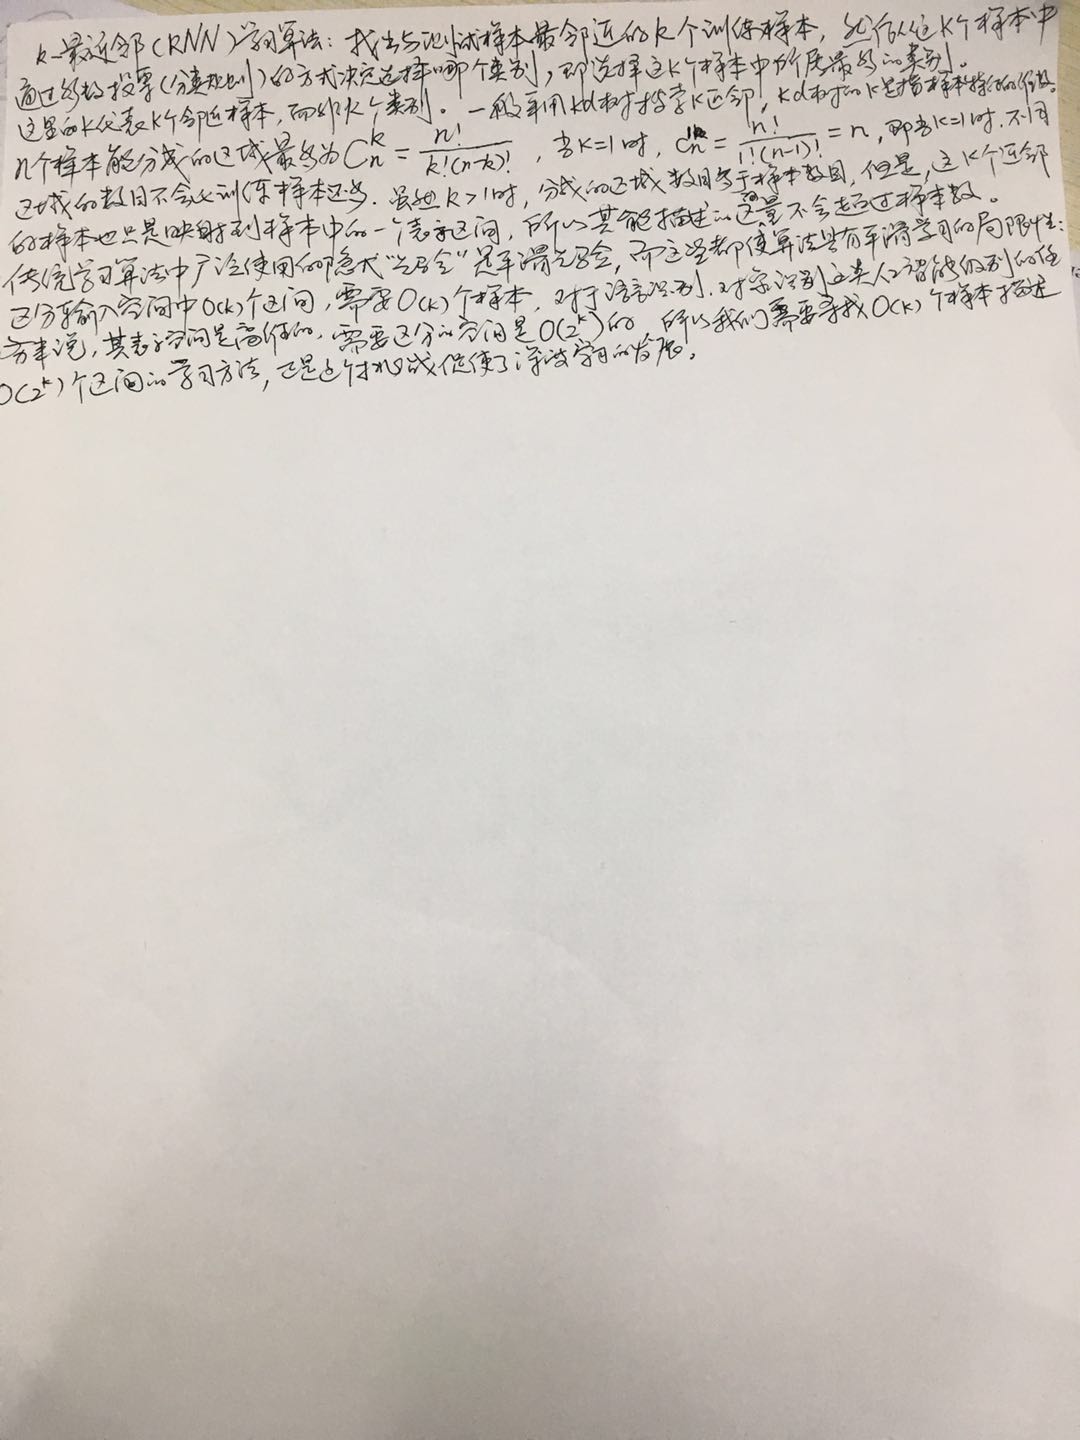 k-最近邻(KNN)学习算法：找出与测试样本最邻近的k个训练样本，然后从这K个样本中
通过多数投票(分类规则)的方式决定选择哪个类别，即选择这K个样本中所属最多的类别。
这里的K代表K个邻近样本，而非K个类别。一般采用kd树搜索K近邻，kd树的K是指样本特征的维数。
n个样本能分成的区域最多为 C_n^k = n!/(k!(n-k)!)，当K=1时，C_n^k = n!/(1!(n-1)!) = n，即当K=1时，不同
区域的数目不会比训练样本还多。虽然K>1时，分成的区域数目多于样本数目，但是，这K个近邻
的样本也只是映射到样本中的一个表示区间，所以其能描述的还是不会超过样本数。
传统学习算法中广泛使用的隐式“先验”是平滑先验，而这些都使算法具有平滑学习的局限性：
区分输入空间中O(k)个区间，需要O(k)个样本，对于语言识别，对象识别这类人工智能级别的任
务来说，其表示空间是高维的，需要区分的空间是O(2^k)的，所以我们需要寻找O(k)个样本描述
O(2^k)个区间的学习方法，正是这个挑战促使了深度学习的发展。